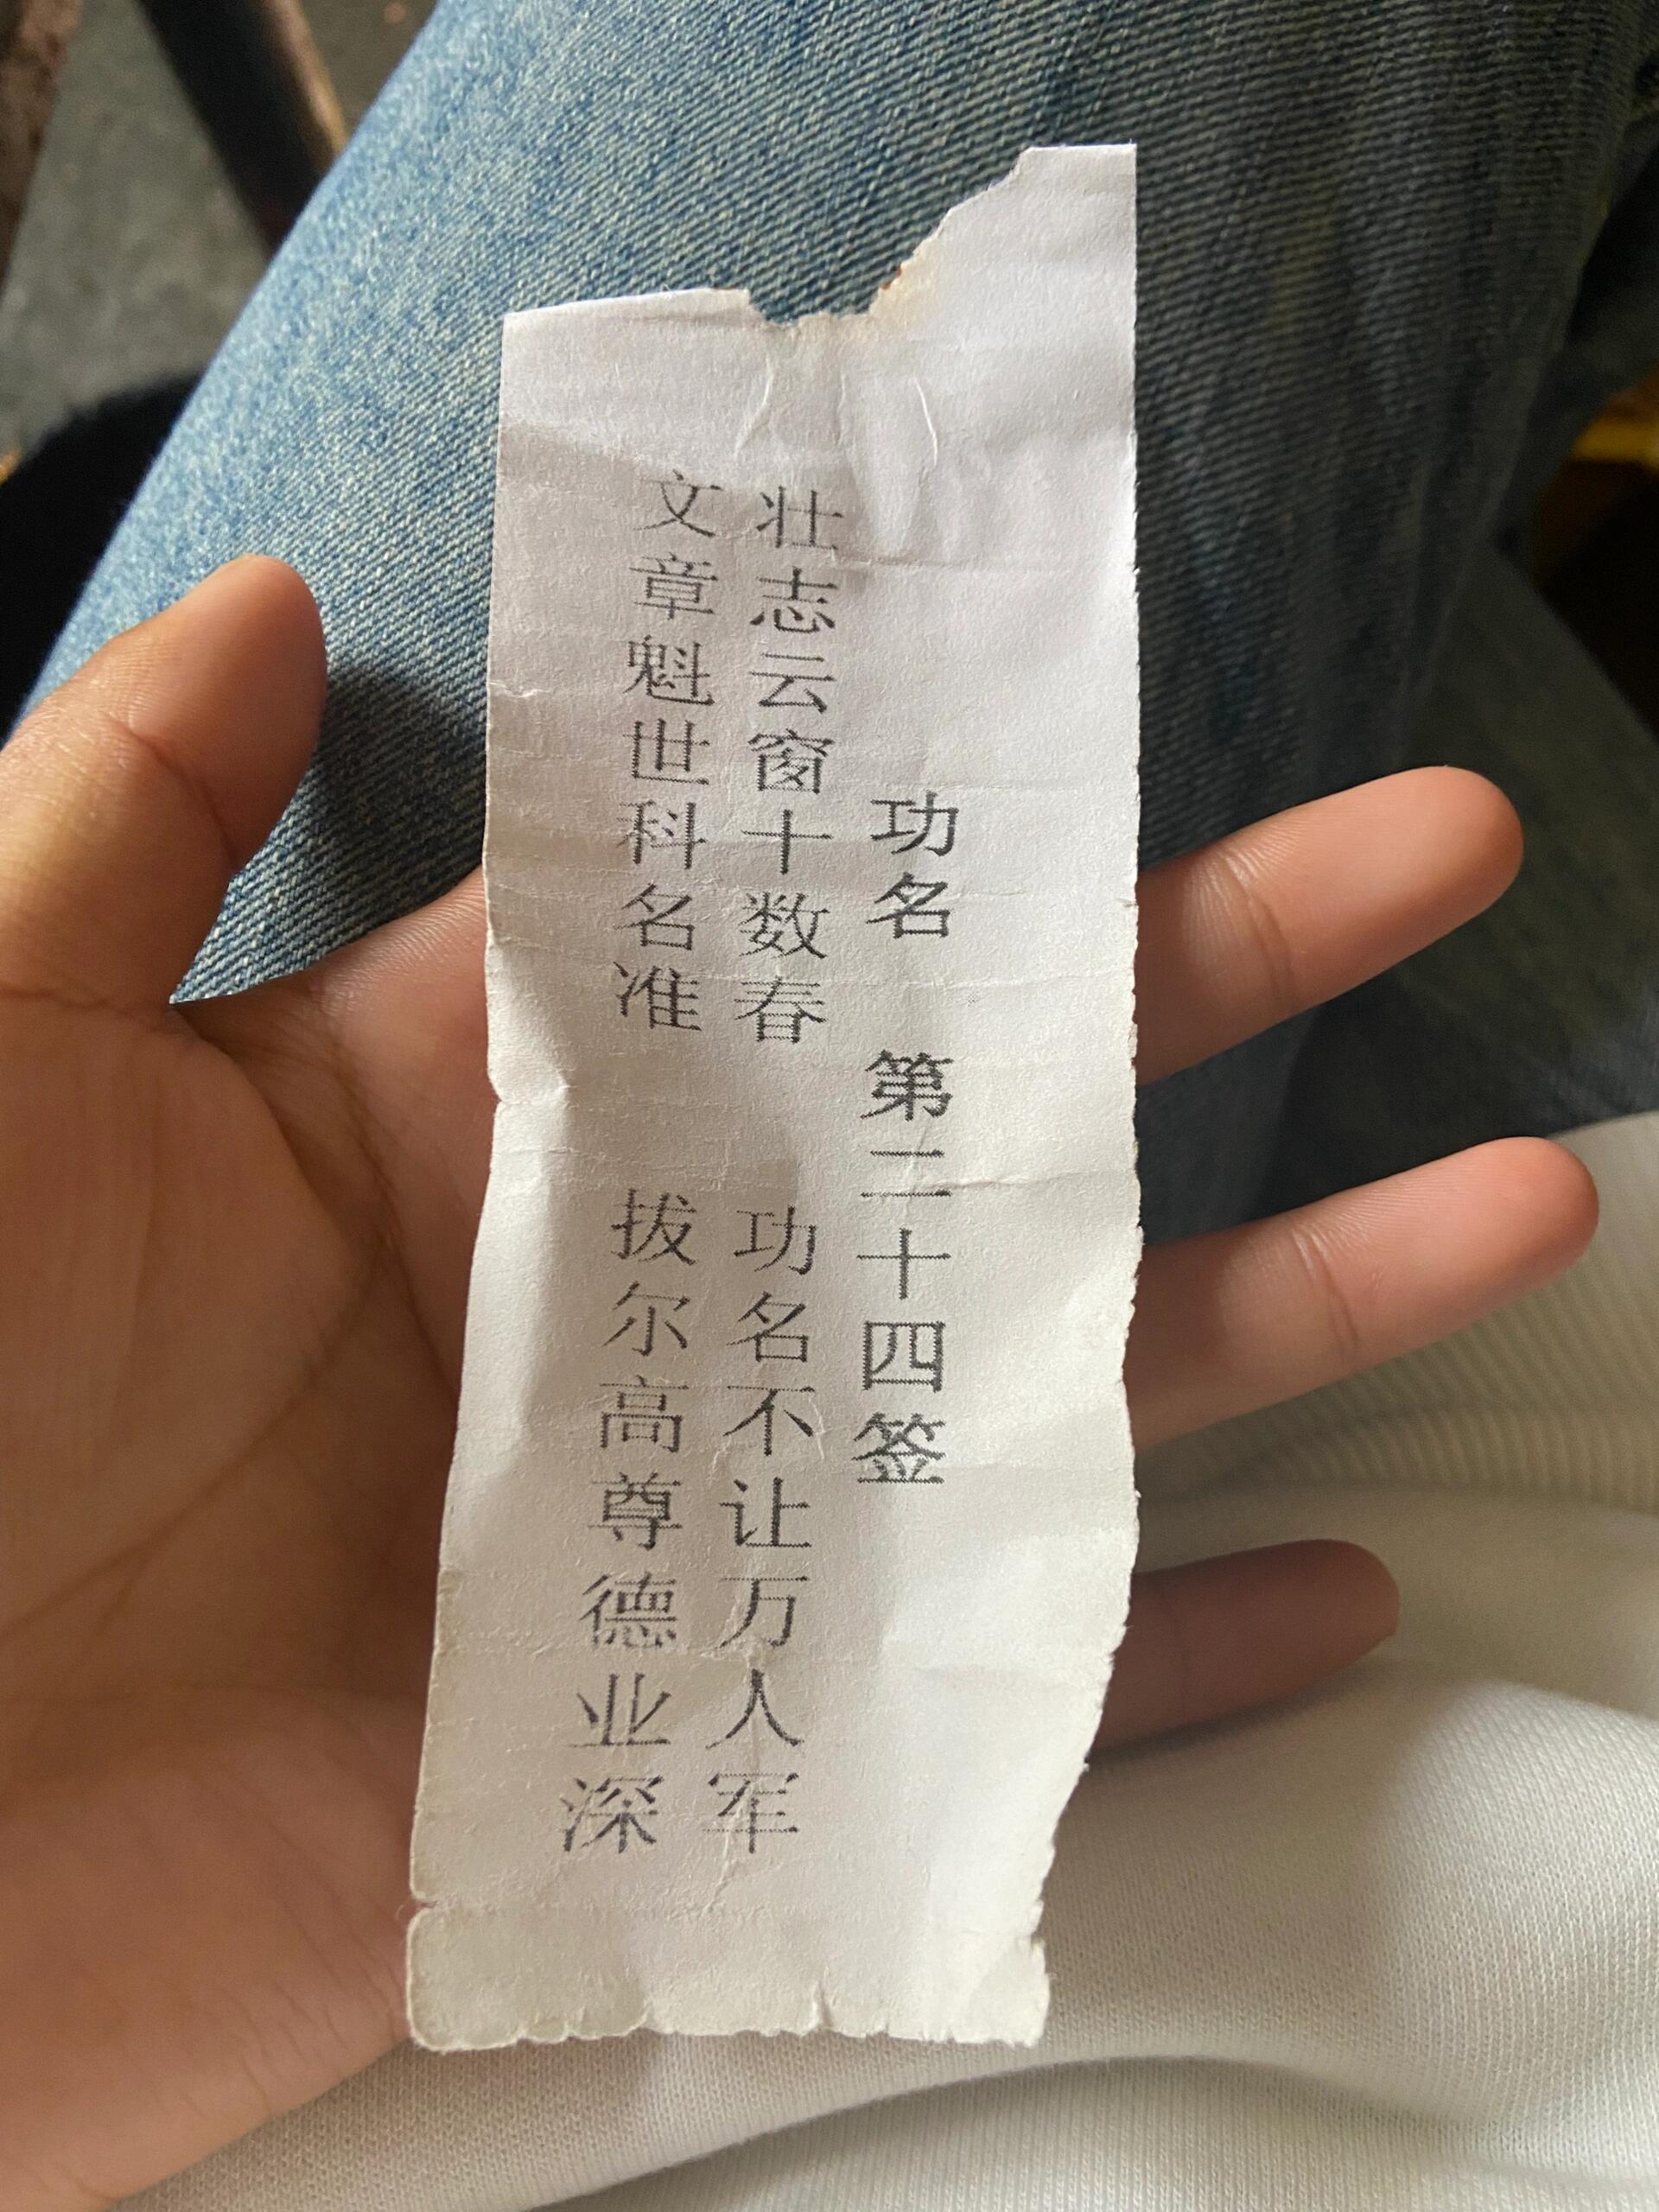 功名 第二十四签
壮志云窗十数春 功名不让万人军
文章魁世科名准 拔尔高尊德业深